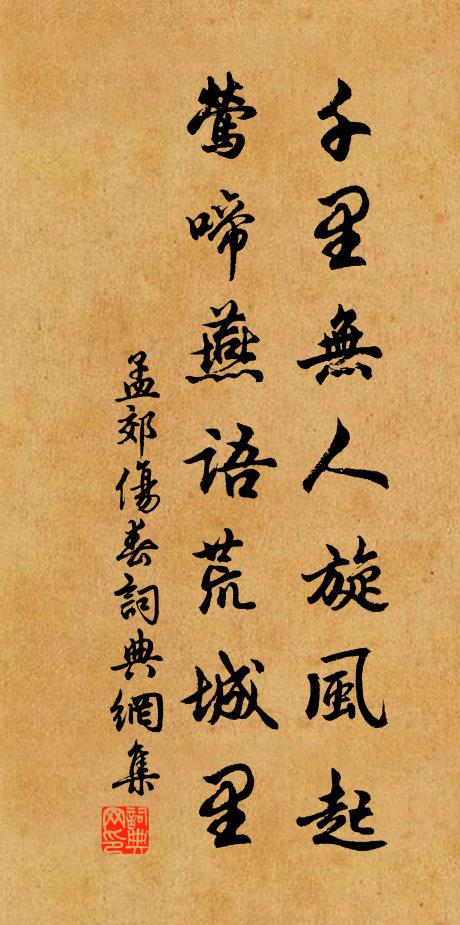 千里無人旋風起
鶯啼燕語荒城里
孟郊傷春詞典網集
詞典网印